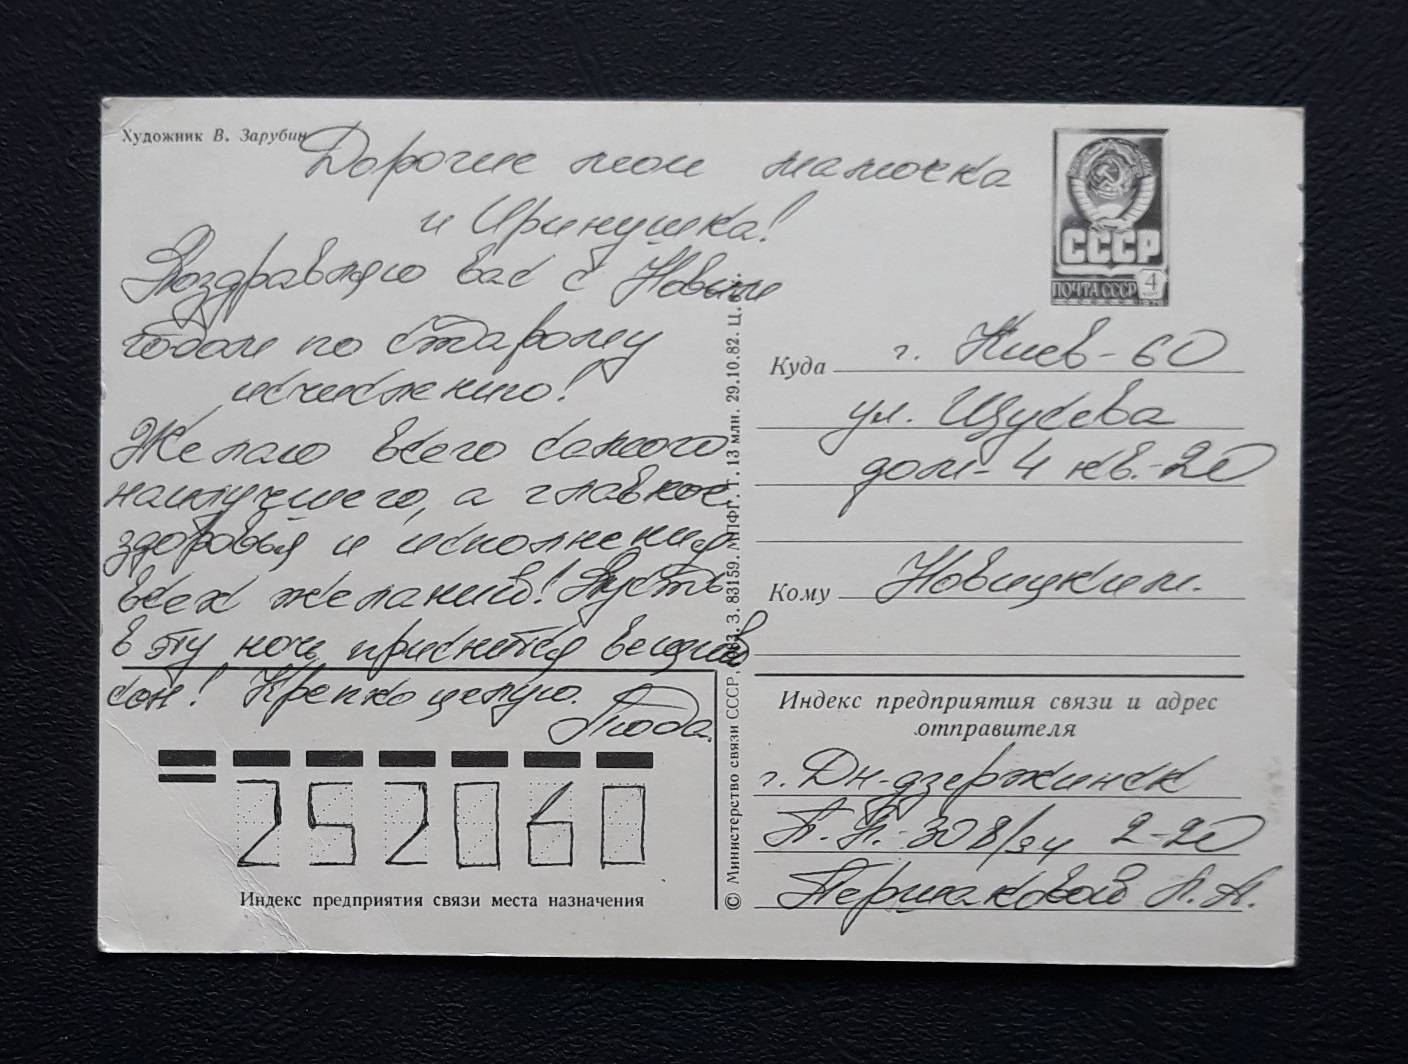 Художник В. Зарубин
Дорогие мои мамочка
и Иринушка!
Поздравляю вас с Новым
годом по старому
исчислению!
Желаю всего самого
наилучшего, а главное
здоровья и исполнения
всех желаний! Пусть
в эту ночь приснится вещий
сон! Крепко целую.
252060
Индекс предприятия связи места назначения
© Министерство связи СССР, З. 83159. МПФГ. Т. 13 млн. 29.10.82. Ц.
СССР
ПОЧТА СССР 4
Куда г. Киев-60
ул. Щусева
дом-4 кв.-20
Кому Новицким.
Индекс предприятия связи и адрес
отправителя
г. Дн-дзержинск
2-20
Першаковой Л. А.